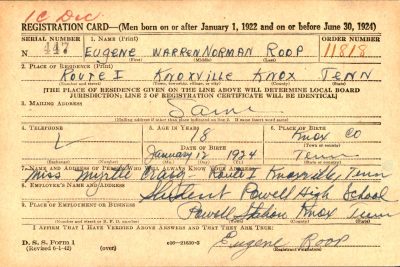 1C Dec
REGISTRATION CARD—(Men born on or after January 1, 1922 and on or before June 30, 1924)
SERIAL NUMBER 1. NAME (Print) ORDER NUMBER
447 EUGENE WARREN NORMAN ROOP 11818
(First) (Middle) (Last)
2. PLACE OF RESIDENCE (Print)
ROUTE I KNOXVILLE KNOX TENN
(Number and street) (Town, township, village, or city) (County) (State)
[THE PLACE OF RESIDENCE GIVEN ON THE LINE ABOVE WILL DETERMINE LOCAL BOARD
JURISDICTION; LINE 2 OF REGISTRATION CERTIFICATE WILL BE IDENTICAL]
3. MAILING ADDRESS
Same
[Mailing address if other than place indicated on line 2. If same insert word same]
4. TELEPHONE 5. AGE IN YEARS 6. PLACE OF BIRTH
18 Knox CO
DATE OF BIRTH (Town or county)
January 12 1924 Tenn
(Exchange) (Number) (Mo.) (Day) (Yr.) (State or country)
7. NAME AND ADDRESS OF PERSON WHO WILL ALWAYS KNOW YOUR ADDRESS
Miss Myrtle Route I Knoxville, Tenn
8. EMPLOYER'S NAME AND ADDRESS
Student Powell High School
9. PLACE OF EMPLOYMENT OR BUSINESS
Powell Station Knox Tenn
(Number and street or R. F. D. number) (Town) (County) (State)
I AFFIRM THAT I HAVE VERIFIED ABOVE ANSWERS AND THAT THEY ARE TRUE.
D. S. S. Form 1 (over) 16—21630-2 Eugene Roop
(Revised 6-1-42)